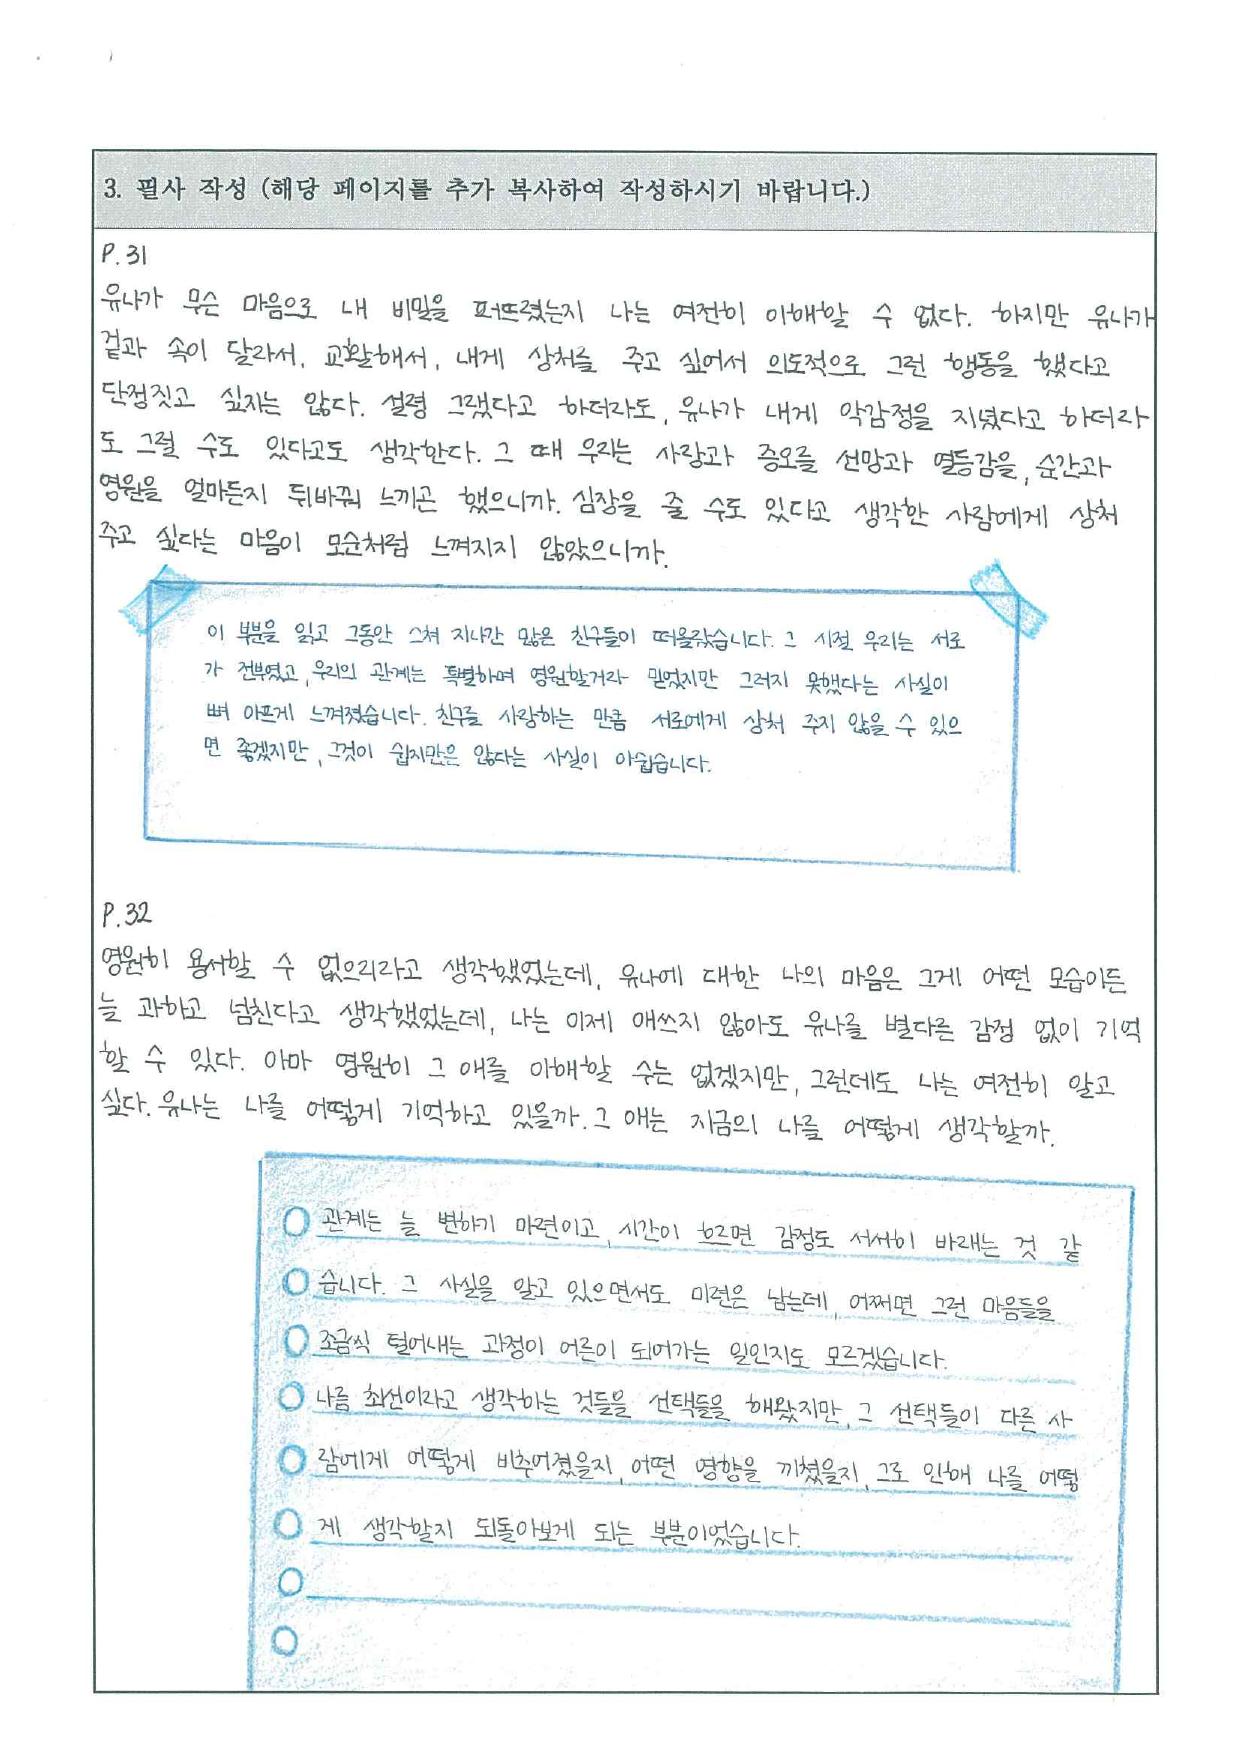 3. 필사 작성 (해당 페이지를 추가 복사하여 작성하시기 바랍니다.)
P.31
유나가 무슨 마음으로 내 비밀을 퍼뜨렸는지 나는 여전히 이해할 수 없다. 하지만 유나가
겉과 속이 달라서, 교활해서, 내게 상처를 주고 싶어서 의도적으로 그런 행동을 했다고
단정짓고 싶지는 않다. 설령 그랬다고 하더라도, 유나가 내게 악감정을 지녔다고 하더라
도 그럴 수도 있다고도 생각한다. 그 때 우리는 사랑과 증오를 선망과 열등감을, 순간과
영원을 얼마든지 뒤바꿔 느끼곤 했으니까. 심장을 줄 수도 있다고 생각한 사람에게 상처
주고 싶다는 마음이 모순처럼 느껴지지 않았으니까.
이 부분을 읽고 그동안 스쳐 지나간 많은 친구들이 떠올랐습니다. 그 시절 우리는 서로
가 전부였고, 우리의 관계는 특별하며 영원할거라 믿었지만 그러지 못했다는 사실이
뼈 아프게 느껴졌습니다. 친구를 사랑하는 만큼 서로에게 상처 주지 않을 수 있으
면 좋겠지만, 그것이 쉽지만은 않다는 사실이 아쉽습니다.
P.32
영원히 용서할 수 없으리라고 생각했었는데, 유나에 대한 나의 마음은 그게 어떤 모습이든
늘 과하고 넘친다고 생각했었는데, 나는 이제 애쓰지 않아도 유나를 별다른 감정 없이 기억
할 수 있다. 아마 영원히 그 애를 이해할 수는 없겠지만, 그런데도 나는 여전히 알고
싶다. 유나는 나를 어떻게 기억하고 있을까. 그 애는 지금의 나를 어떻게 생각할까.
관계는 늘 변하기 마련이고, 시간이 흐르면 감정도 서서히 바래는 것 같
습니다. 그 사실을 알고 있으면서도 미련은 남는데, 어쩌면 그런 마음들을
조금씩 털어내는 과정이 어른이 되어가는 일인지도 모르겠습니다.
나름 최선이라고 생각하는 것들을 선택들을 해왔지만, 그 선택들이 다른 사
람에게 어떻게 비추어졌을지, 어떤 영향을 끼쳤을지, 그로 인해 나를 어떻
게 생각할지 되돌아보게 되는 부분이었습니다.